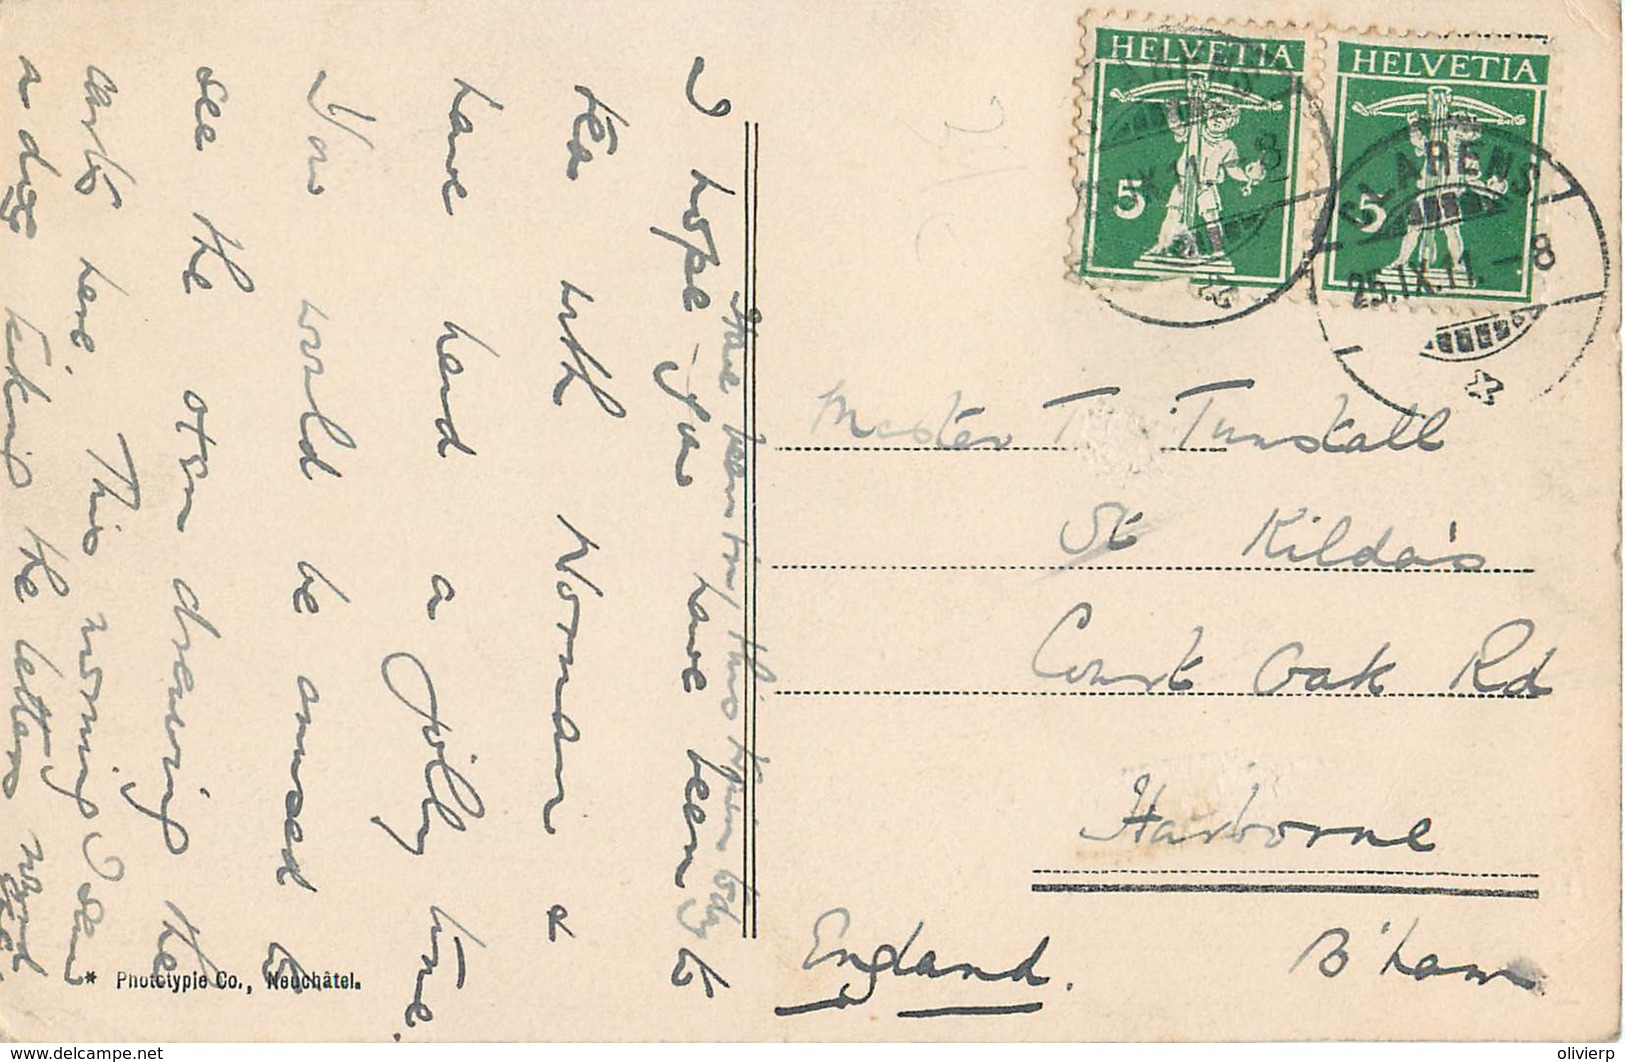 HELVETIA
HELVETIA
5
5
CLARENS
25.IX.11.-8
IX.11.-8
I hope you have been to
tea with Norman &
have had a jolly time.
You would be amused to
see the oxen drawing the
carts here. This morning I saw
a dog taking the letters round
Master T. Tunstall
St Kilda's
Court Oak Rd
Harborne
B'ham
England.
* Phototypie Co., Neuchâtel.
www.delcampe.net
olivierp